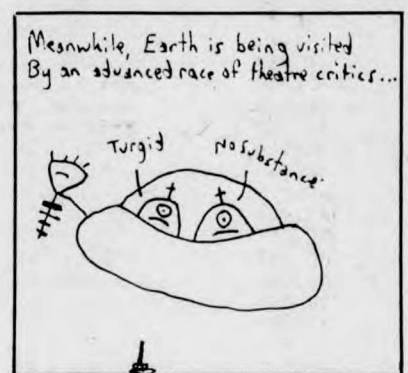 Meanwhile, Earth is being visited
By an advanced race of theatre critics...
Turgid
No Substance.